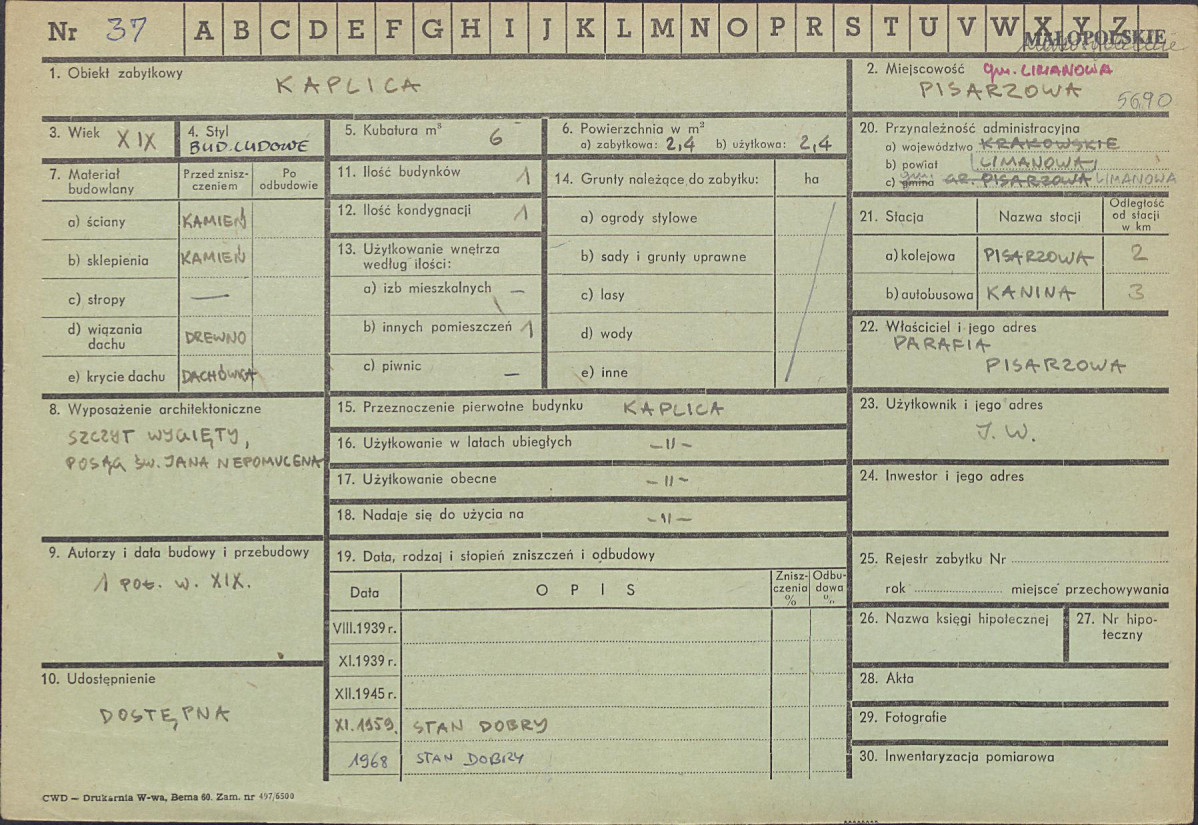 Nr 37 A B C D E F G H I J K L M N O P R S T U V W X Y Z
MAŁOPOLSKIE
1. Obiekt zabytkowy
KAPLICA
2. Miejscowość gm. LIMANOWA
PISARZOWA
5690
3. Wiek XIX
4. Styl
BUD. LUDOWE
5. Kubatura m³ 6
6. Powierzchnia w m²
a) zabytkowa: 2,4 b) użytkowa: 2,4
20. Przynależność administracyjna
a) województwo KRAKOWSKIE
b) powiat LIMANOWA
c) gmina GR. PISARZOWA LIMANOWA
7. Materiał budowlany
Przed zniszczeniem
Po odbudowie
a) ściany KAMIEŃ
b) sklepienia KAMIEŃ
c) stropy —
d) wiązania dachu DREWNO
e) krycie dachu DACHÓWKA
11. Ilość budynków 1
12. Ilość kondygnacji 1
13. Użytkowanie wnętrza
według ilości:
a) izb mieszkalnych —
b) innych pomieszczeń 1
c) piwnic —
14. Grunty należące do zabytku: ha
a) ogrody stylowe
b) sady i grunty uprawne
c) lasy
d) wody
e) inne
21. Stacja Nazwa stacji Odległość od stacji w km
a) kolejowa PISARZOWA 2
b) autobusowa KANINA 3
22. Właściciel i jego adres
PARAFIA
PISARZOWA
8. Wyposażenie architektoniczne
SZCZYT WYGIĘTY,
POSĄG ŚW. JANA NEPOMUCENA
15. Przeznaczenie pierwotne budynku KAPLICA
16. Użytkowanie w latach ubiegłych -"-
17. Użytkowanie obecne -"-
18. Nadaje się do użycia na -"-
23. Użytkownik i jego adres
J. W.
24. Inwestor i jego adres
9. Autorzy i data budowy i przebudowy
1 POŁ. W. XIX.
19. Data, rodzaj i stopień zniszczeń i odbudowy
Data OPIS Zniszczenia % Odbudowa %
VIII.1939 r.
XI.1939 r.
XII.1945 r.
XI.1959. STAN DOBRY
1968 STAN DOBRY
25. Rejestr zabytku Nr
rok miejsce przechowywania
26. Nazwa księgi hipotecznej
27. Nr hipoteczny
10. Udostępnienie
DOSTĘPNA
28. Akta
29. Fotografie
30. Inwentaryzacja pomiarowa
CWD — Drukarnia W-wa, Bema 60. Zam. nr 497/6500